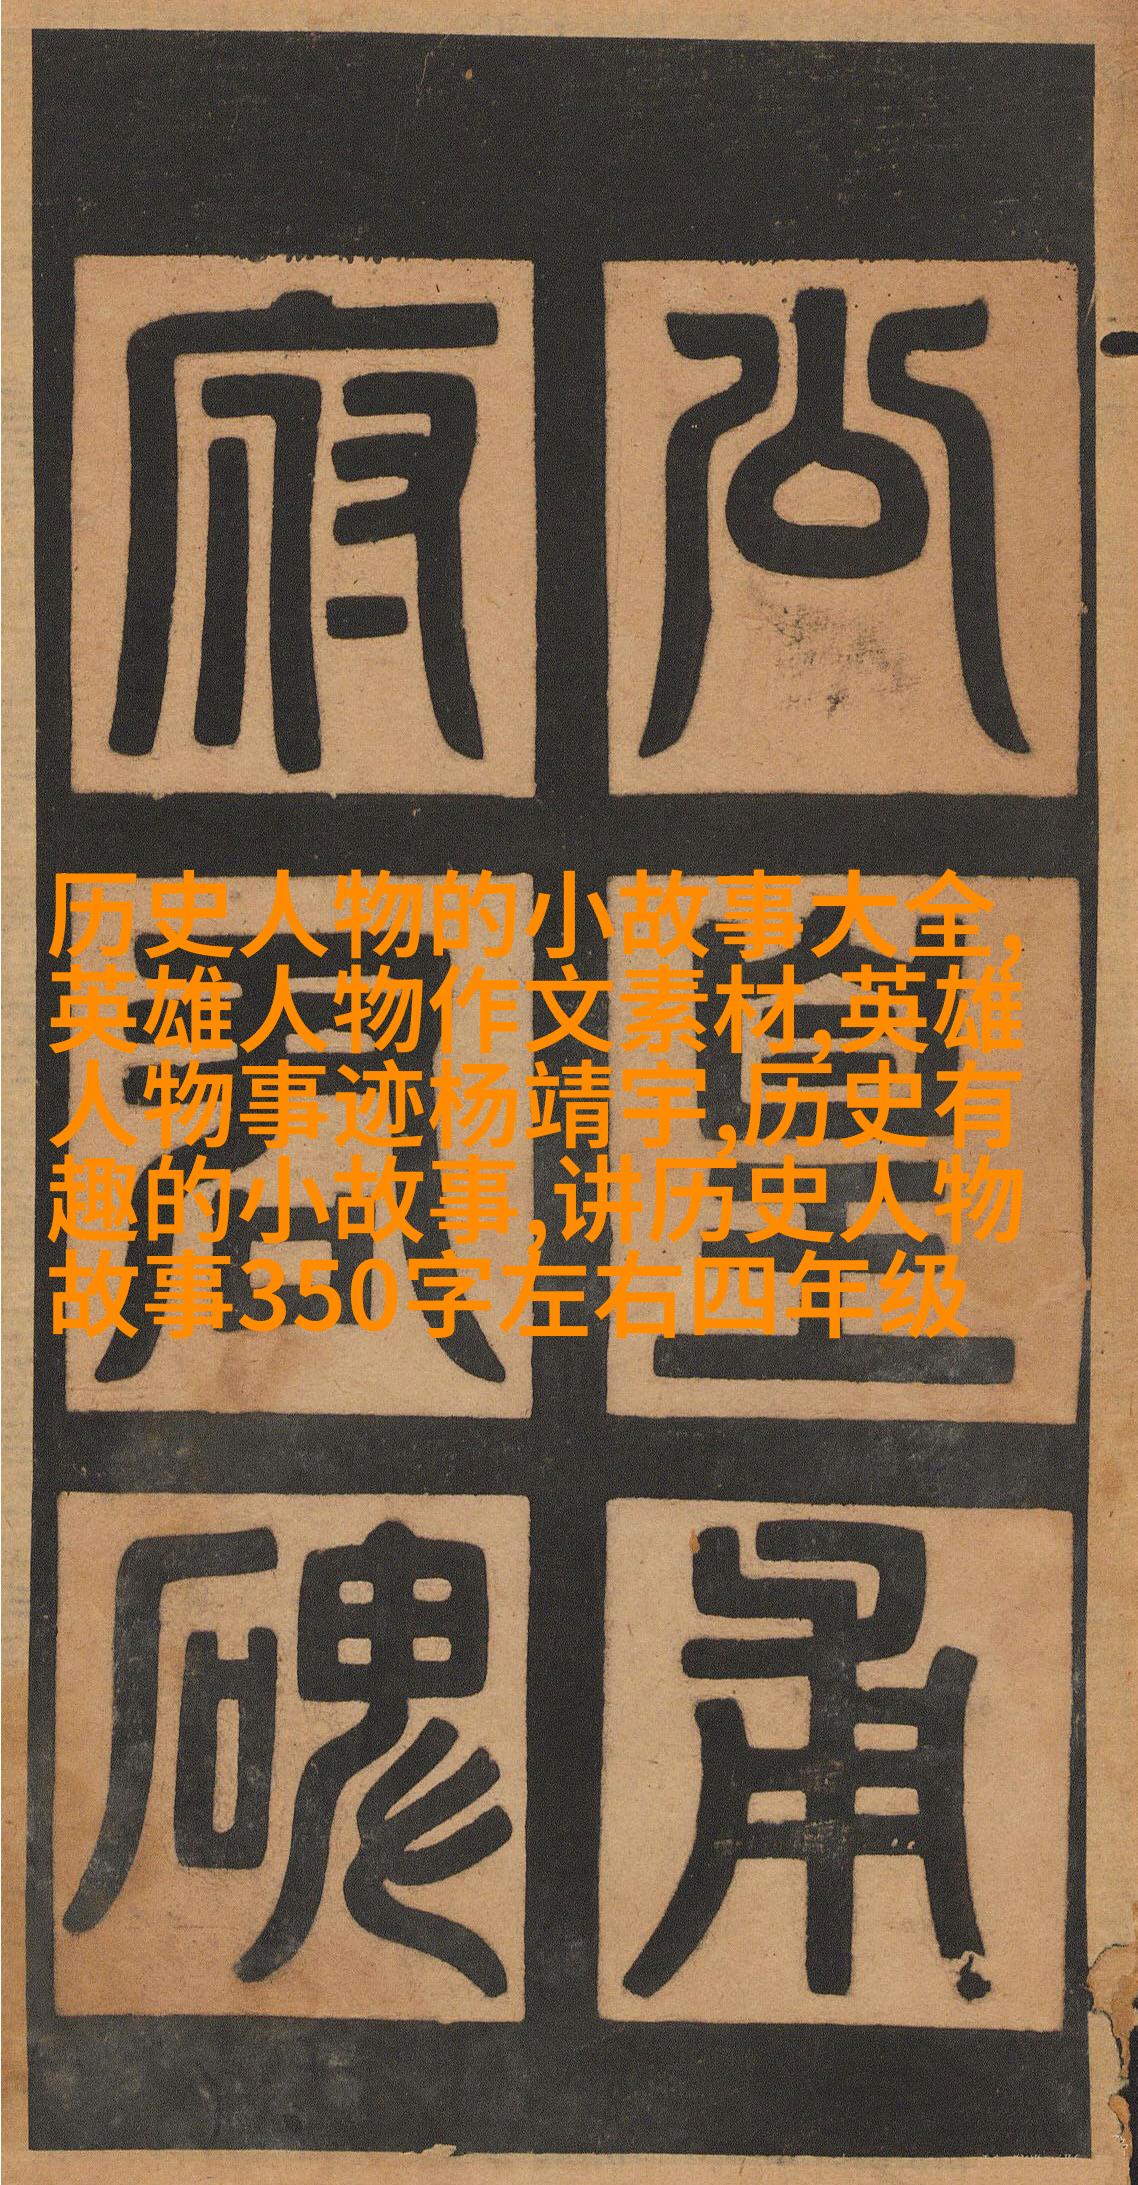 公皇甫
府君碑
历史人物的小故事大全,
英雄人物作文素材,英雄
人物事迹杨靖宇,历史有
趣的小故事,讲历史人物
故事350字左右四年级